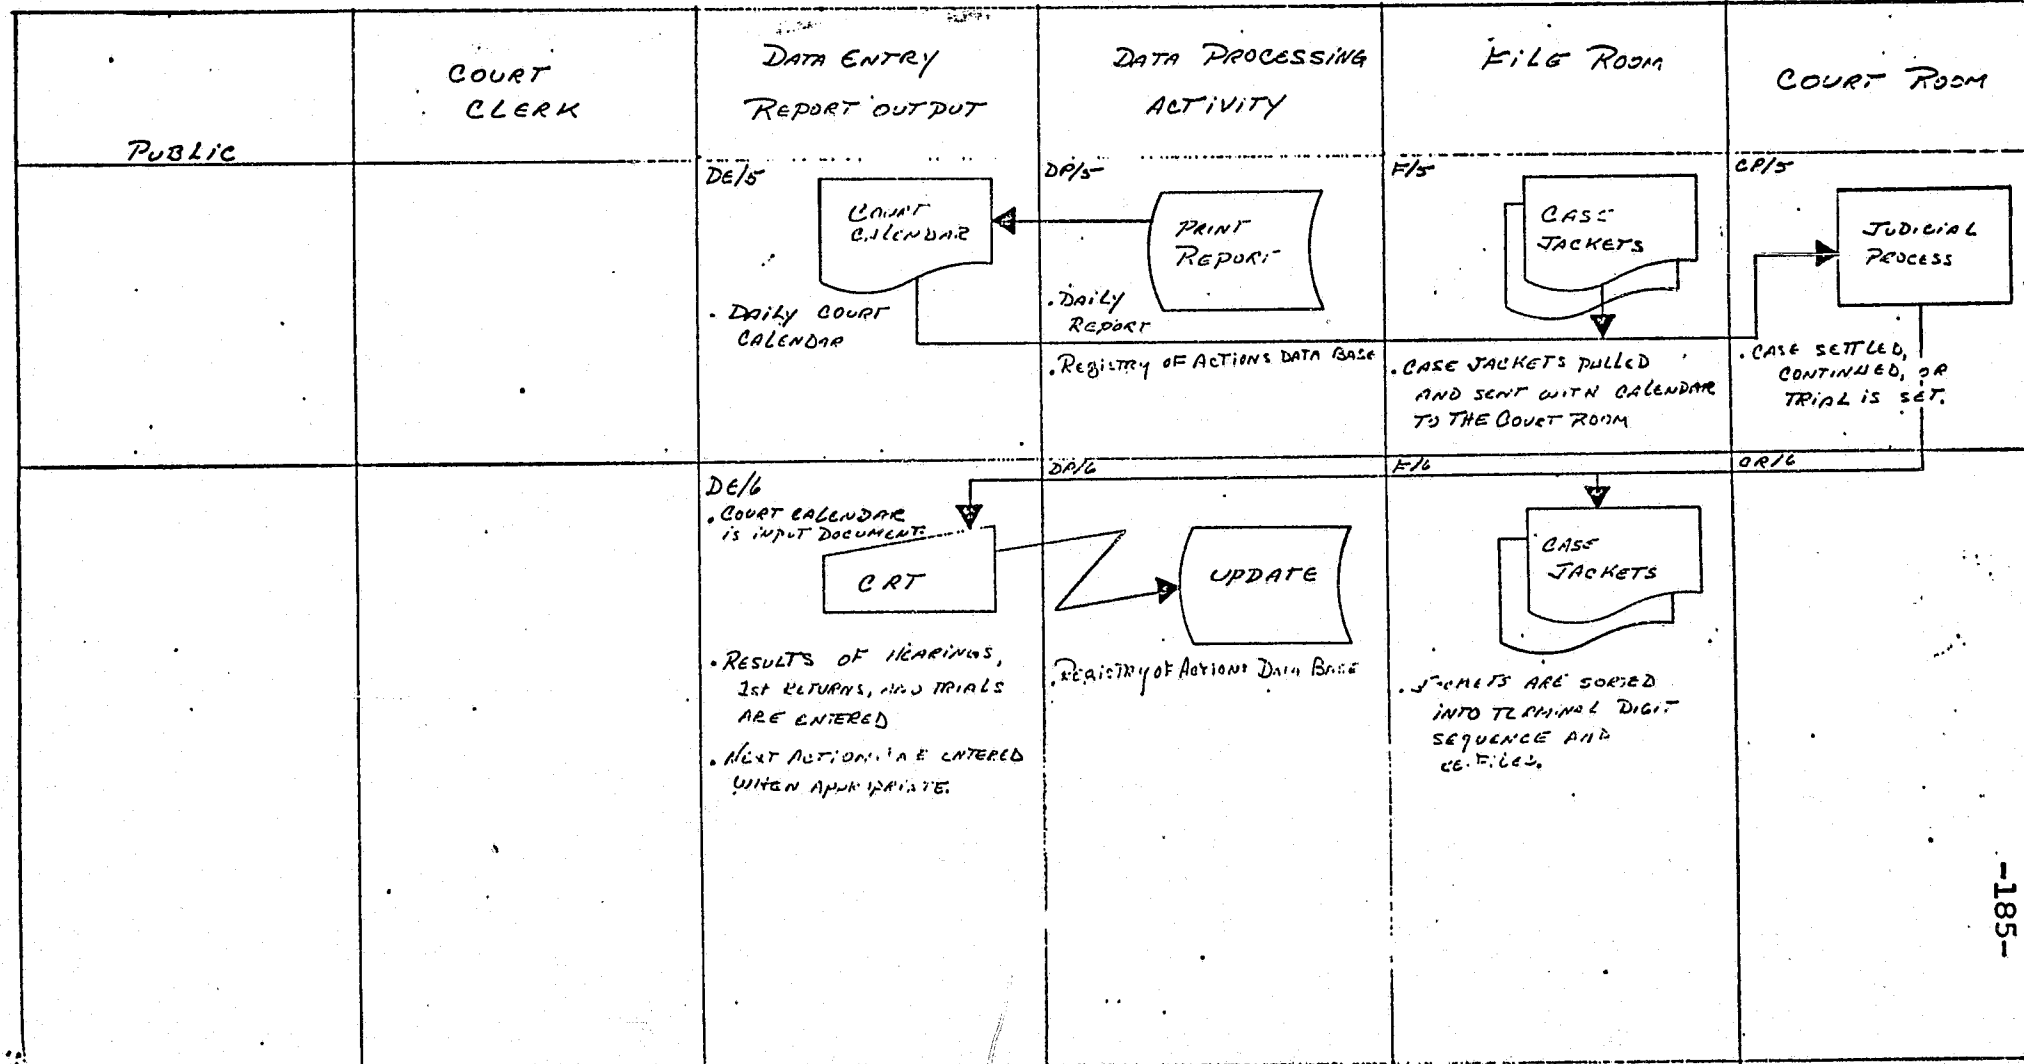 PUBLIC
COURT
CLERK
DATA ENTRY
REPORT OUTPUT
DATA PROCESSING
ACTIVITY
FILE ROOM
COURT ROOM
DE/5
COURT
CALENDAR
. DAILY COURT
CALENDAR
DP/5
PRINT
REPORT
. DAILY
REPORT
. REGISTRY OF ACTIONS DATA BASE
F/5
CASE
JACKETS
. CASE JACKETS PULLED
AND SENT WITH CALENDAR
TO THE COURT ROOM
CR/5
JUDICIAL
PROCESS
. CASE SETTLED,
CONTINUED, OR
TRIAL IS SET.
DE/6
. COURT CALENDAR
IS INPUT DOCUMENT.
CRT
. RESULTS OF HEARINGS,
1st RETURNS, AND TRIALS
ARE ENTERED
. NEXT ACTION ENTERED
WHEN APPROPRIATE.
DP/6
UPDATE
. REGISTRY OF ACTIONS DATA BASE
F/6
CASE
JACKETS
. JACKETS ARE SORTED
INTO TERMINAL DIGIT
SEQUENCE AND
RE-FILED.
CR/6
-185-